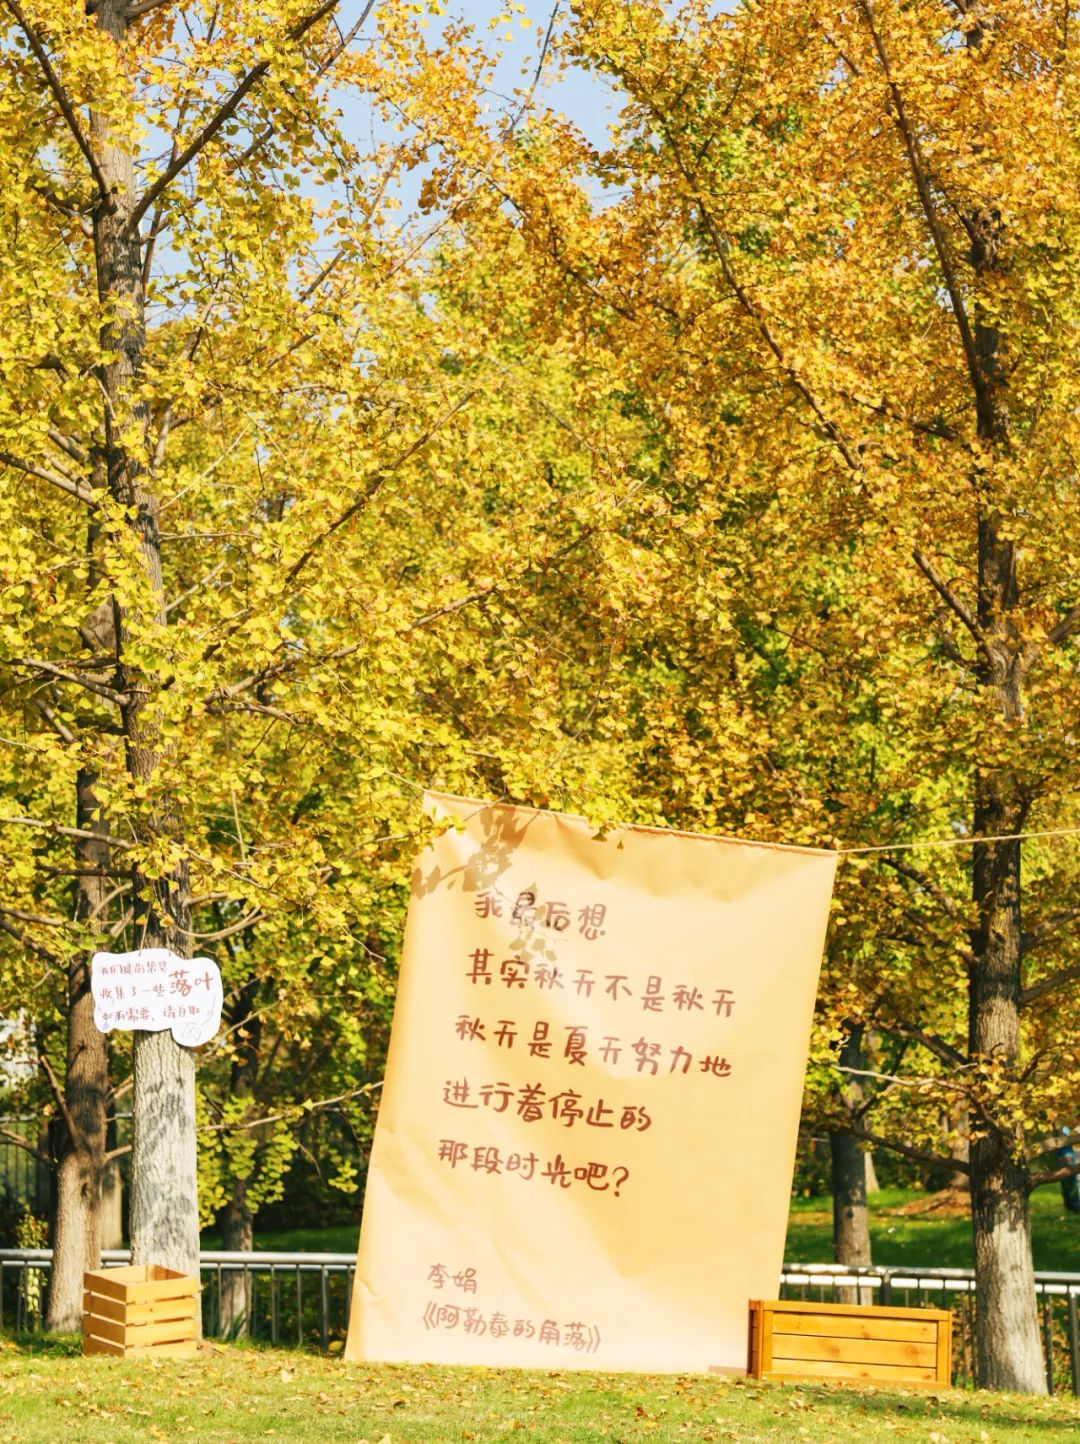 我最后想
其实秋天不是秋天
秋天是夏天努力地
进行着停止的
那段时光吧？
李娟
《阿勒泰的角落》
收集了一些落叶
如有需要，请自取